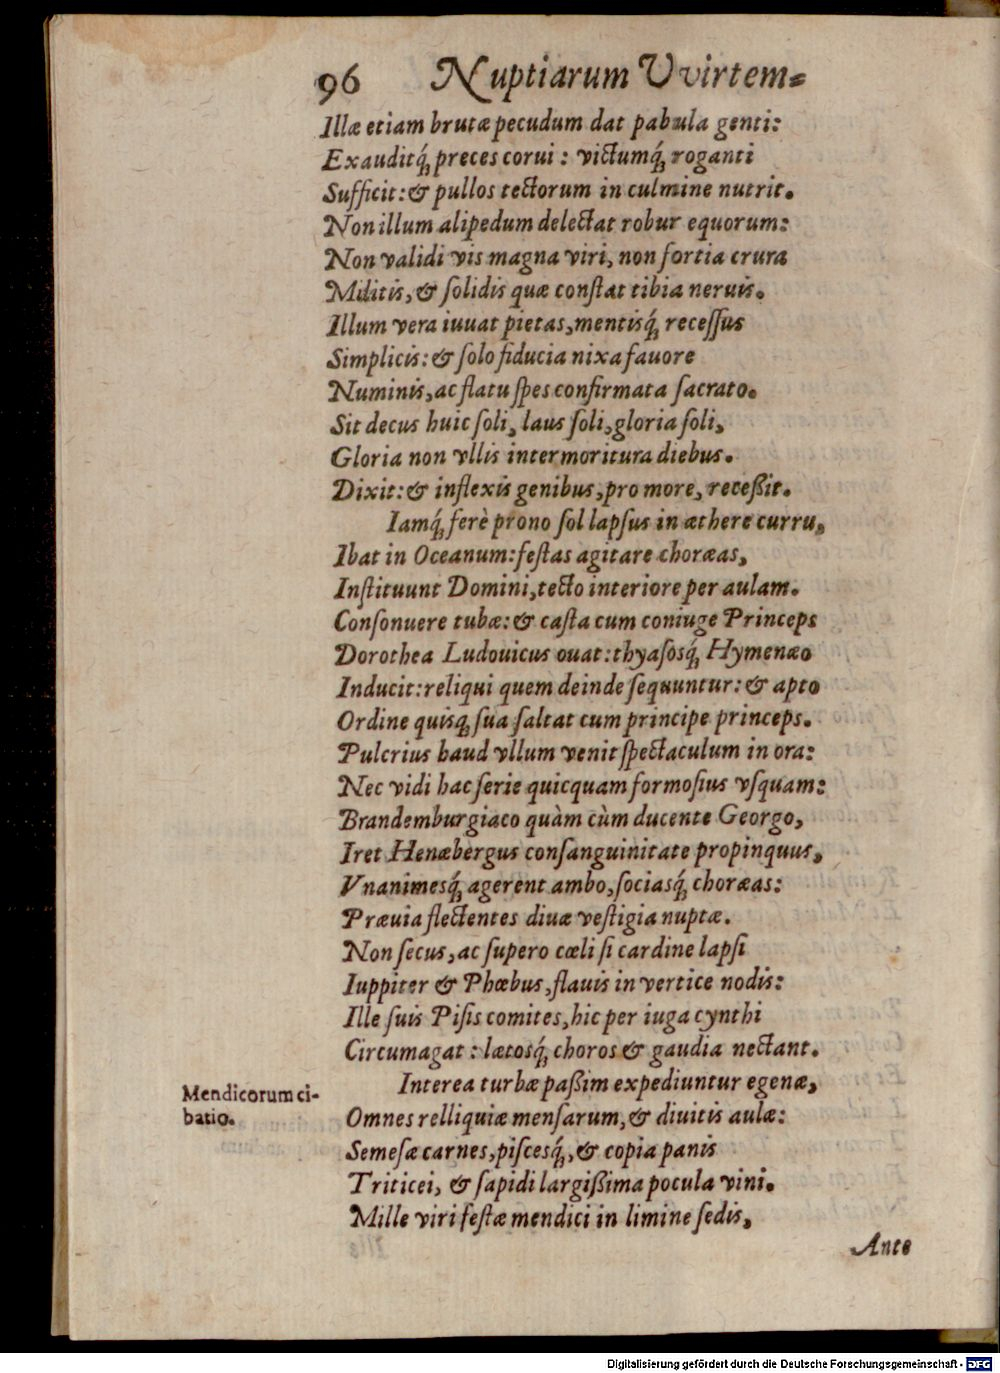 96 Nuptiarum Vvirtem⸗
Illæ etiam brutæ pecudum dat pabula genti:
Exauditq́ꝫ preces corui: victumq́ꝫ roganti
Sufficit: & pullos tectorum in culmine nutrit.
Non illum alipedum delectat robur equorum:
Non validi vis magna viri, non fortia crura
Militis, & ſolidis quæ conſtat tibia neruis.
Illum vera iuuat pietas, mentisq́ꝫ receſſus
Simplicis: & ſolo fiducia nixa fauore
Numinis, ac flatu ſpes confirmata ſacrato.
Sit decus huic ſoli, laus ſoli, gloria ſoli,
Gloria non vllis intermoritura diebus.
Dixit: & inflexis genibus, pro more, receßit.
Iamq́ꝫ ferè prono ſol lapſus in æthere curru,
Ibat in Oceanum: feſtas agitare choræas,
Inſtituunt Domini, tecto interiore per aulam.
Conſonuere tubæ: & caſta cum coniuge Princeps
Dorothea Ludouicus ouat: thyaſosq́ꝫ Hymenæo
Inducit: reliqui quem deinde ſequuntur: & apto
Ordine quisqꝫ ſua ſaltat cum principe princeps.
Pulcrius haud vllum venit ſpectaculum in ora:
Nec vidi hac ſerie quicquam formoſius vſquam:
Brandemburgiaco quàm cùm ducente Georgo,
Iret Henæbergus conſanguinitate propinquus,
Vnanimesq́ꝫ agerent ambo, ſociasq́ꝫ choræas:
Præuia flectentes diuæ veſtigia nuptæ.
Non ſecus, ac ſupero cœli ſi cardine lapſi
Iuppiter & Phœbus, flauis in vertice nodis:
Ille ſuis Piſis comites, hic per iuga cynthi
Circumagat: lætosq́ꝫ choros & gaudia nectant.
Interea turbæ paßim expediuntur egenæ,
Mendicorum ci-
batio.
Omnes relliquiæ menſarum, & diuitis aulæ:
Semeſæ carnes, piſcesq́ꝫ, & copia panis
Triticei, & ſapidi largißima pocula vini.
Mille viri feſtæ mendici in limine ſedis,
Ante
Digitalisierung gefördert durch die Deutsche Forschungsgemeinschaft - DFG